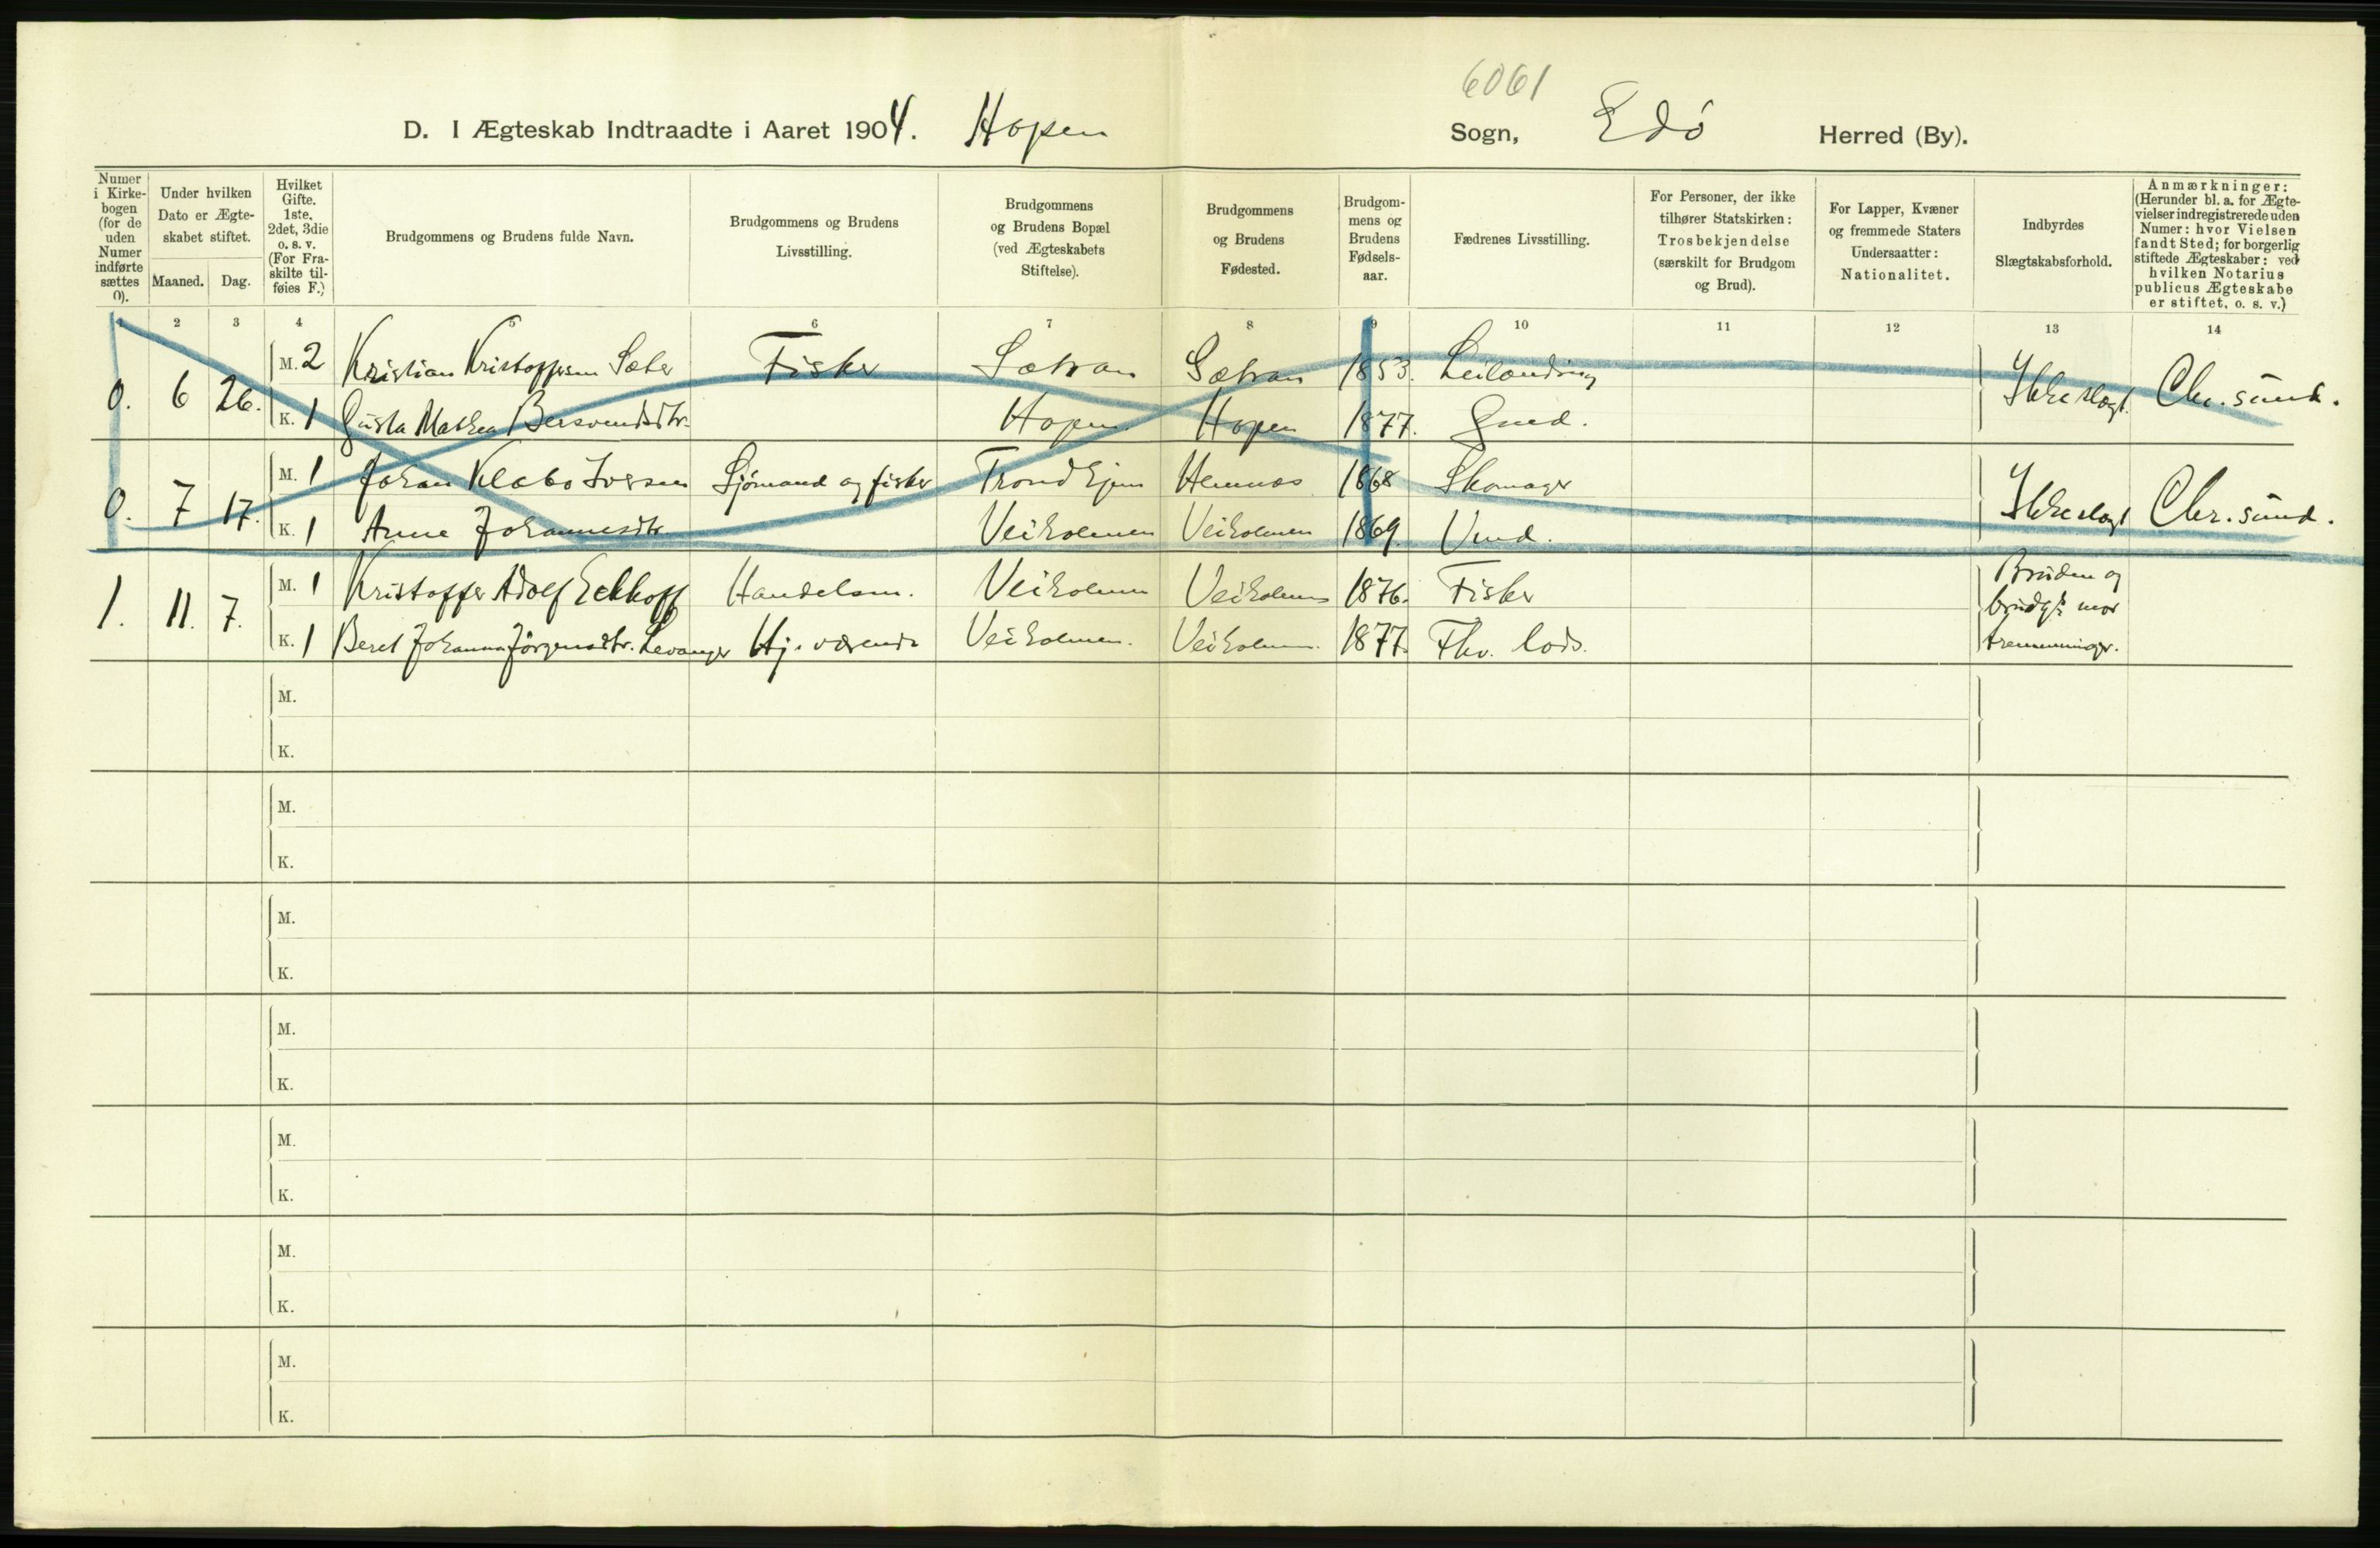 6061
D. I Ægteskab Indtraadte i Aaret 1904. Hopen Sogn, Edø Herred (By).
Numer i Kirkebogen (for de uden Numer indførte sættes 0).
Under hvilken Dato er Ægteskabet stiftet.
Maaned. Dag.
Hvilket Gifte. 1ste, 2det, 3die o. s. v. (For Fraskilte tilføies F.)
Brudgommens og Brudens fulde Navn.
Brudgommens og Brudens Livsstilling.
Brudgommens og Brudens Bopæl (ved Ægteskabets Stiftelse).
Brudgommens og Brudens Fødested.
Brudgommens og Brudens Fødselsaar.
Fædrenes Livsstilling.
For Personer, der ikke tilhører Statskirken: Trosbekjendelse (særskilt for Brudgom og Brud).
For Lapper, Kvæner og fremmede Staters Undersaatter: Nationalitet.
Indbyrdes Slægtskabsforhold.
Anmærkninger: (Herunder bl. a. for Ægtevielser indregistrerede uden Numer: hvor Vielsen fandt Sted; for borgerlig stiftede Ægteskaber: ved hvilken Notarius publicus Ægteskabe er stiftet, o. s. v.)
1 2 3 4 5 6 7 8 9 10 11 12 13 14
0. 6 26. M. 2 Kristian Kristoffersen Sæter Fisker Sætran Sætran 1853. Leilænding Ikke slægt. Chr.sund.
K. 1 Gusta Mathea Bersvendsdtr. Hopen Hopen 1877. Gmd.
0. 7 17. M. 1 Johan Klæbo Iversen Sjømand og fisker Trondhjem Hemnæs 1868 Skomager Ikke slægt Chr.sund.
K. 1 Anne Johannesdtr. Veiholmen Veiholmen 1869.
1. 11. 7. M. 1 Kristoffer Adolf Eckhoff Handelsm. Veiholmen Veiholmen 1876. Fisker Bruden og brudg.s mor tremenninger.
K. 1 Beret Johanna Jørgensdtr. Levanger Hj. værende Veiholmen. Veiholmen. 1877. Fhv. lods.
M.
K.
M.
K.
M.
K.
M.
K.
M.
K.
M.
K.
M.
K.